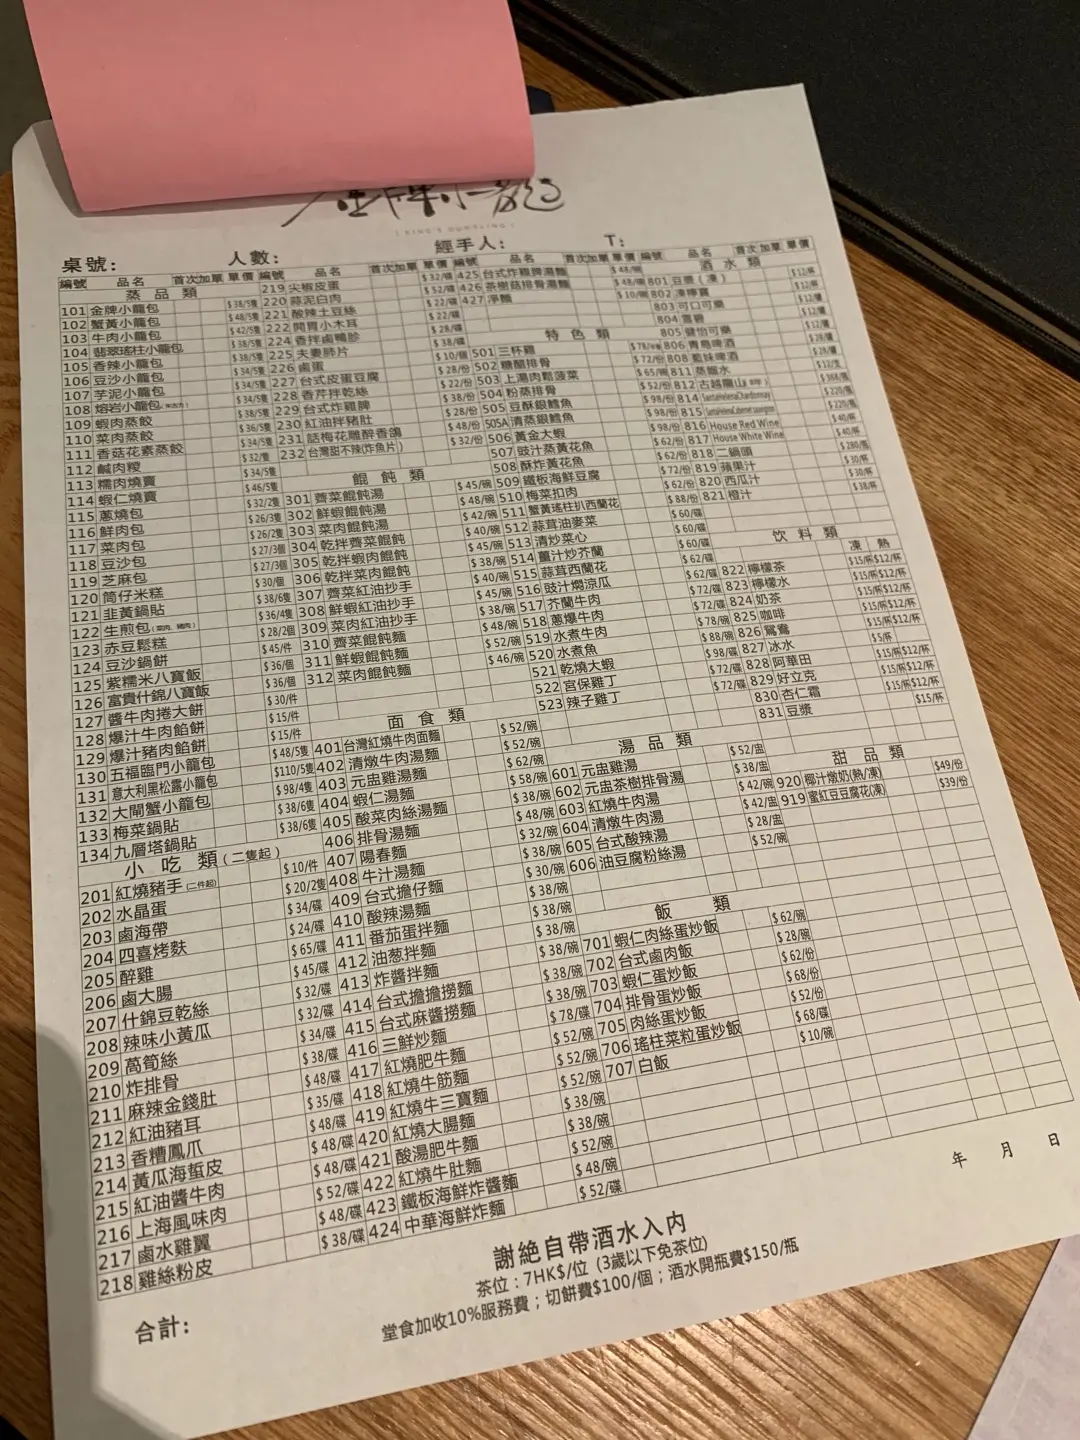 金牌小龍
[ KING'S DUMPLING ]
桌號: 人數: 經手人: T:
編號 品名 首次 加單 單價 編號 品名 首次 加單 單價 編號 品名 首次 加單 單價 編號 品名 首次 加單 單價
蒸品類
101 金牌小龍包 $38/5隻
102 蟹黃小龍包 $48/5隻
103 牛肉小龍包 $42/5隻
104 翡翠瑤柱小龍包 $38/5隻
105 香辣小龍包 $38/5隻
106 豆沙小龍包 $34/5隻
107 芋泥小龍包 $34/5隻
108 熔岩小龍包 $34/5隻
109 蝦肉蒸餃 $38/5隻
110 菜肉蒸餃 $36/5隻
111 香菇花素蒸餃 $34/5隻
112 鹹肉糉 $32/隻
113 糯肉燒賣 $34/5隻
114 蝦仁燒賣 $46/5隻
115 蔥燒包 $32/2隻
116 鮮肉包 $26/3隻
117 菜肉包 $26/2隻
118 豆沙包 $27/3個
119 芝麻包 $27/3個
120 筒仔米糕 $30/個
121 韭黃鍋貼 $38/6隻
122 生煎包 $36/4隻
123 赤豆鬆糕 $28/2個
124 豆沙鍋餅 $45/件
125 紫糯米八寶飯 $36/個
126 富貴什錦八寶飯 $36/個
127 醬牛肉捲大餅 $30/件
128 爆汁牛肉餡餅 $15/件
129 爆汁豬肉餡餅 $15/件
130 五福臨門小龍包 $48/5隻
131 意大利黑松露小龍包 $110/5隻
132 大閘蟹小龍包 $98/4隻
133 梅菜鍋貼 $38/6隻
134 九層塔鍋貼 $38/6隻
小吃類(二隻起)
201 紅燒豬手(二件起) $10/件
202 水晶蛋 $20/2隻
203 鹵海帶 $34/碟
204 四喜烤麩 $24/碟
205 醉雞 $65/碟
206 鹵大腸 $45/碟
207 什錦豆乾絲 $32/碟
208 辣味小黃瓜 $32/碟
209 萵筍絲 $34/碟
210 炸排骨 $38/碟
211 麻辣金錢肚 $48/碟
212 紅油豬耳 $35/碟
213 香糟鳳爪 $48/碟
214 黃瓜海蜇皮 $48/碟
215 紅油醬牛肉 $48/碟
216 上海風味肉 $52/碟
217 鹵水雞翼 $48/碟
218 雞絲粉皮 $38/碟
219 尖椒皮蛋 $32/碟
220 蒜泥白肉 $52/碟
221 酸辣土豆絲 $22/碟
222 開胃小木耳 $22/碟
224 香拌鹵鴨胗 $28/碟
225 夫妻肺片 $38/碟
226 鹵蛋 $10/個
227 台式皮蛋豆腐 $28/份
228 香芹拌乾絲 $22/份
229 台式炸雞脾 $38/份
230 紅油拌豬肚 $28/份
231 話梅花雕醉香鴿 $48/份
232 台灣甜不辣(炸魚片) $32/份
餛飩類
301 薺菜餛飩湯 $45/碗
302 鮮蝦餛飩湯 $48/碗
303 菜肉餛飩湯 $42/碗
304 乾拌薺菜餛飩 $40/碗
305 乾拌蝦肉餛飩 $45/碗
306 乾拌菜肉餛飩 $38/碗
307 薺菜紅油抄手 $40/碗
308 鮮蝦紅油抄手 $45/碗
309 菜肉紅油抄手 $38/碗
310 薺菜餛飩麵 $48/碗
311 鮮蝦餛飩麵 $52/碗
312 菜肉餛飩麵 $46/碗
面食類
401 台灣紅燒牛肉面麵 $52/碗
402 清燉牛肉湯麵 $52/碗
403 元盅雞湯麵 $62/碗
404 蝦仁湯麵 $58/碗
405 酸菜肉絲湯麵 $38/碗
406 排骨湯麵 $48/碗
407 陽春麵 $32/碗
408 牛汁湯麵 $38/碗
409 台式擔仔麵 $30/碗
410 酸辣湯麵 $38/碗
411 番茄蛋拌麵 $38/碗
412 油葱拌麵 $38/碗
413 炸醬拌麵 $38/碗
414 台式擔擔撈麵 $38/碗
415 台式麻醬撈麵 $38/碗
416 三鮮炒麵 $78/碟
417 紅燒肥牛麵 $52/碗
418 紅燒牛筋麵 $52/碗
419 紅燒牛三寶麵 $52/碗
420 紅燒大腸麵 $38/碗
421 酸湯肥牛麵 $38/碗
422 紅燒牛肚麵 $52/碗
423 鐵板海鮮炸醬麵 $48/碗
424 中華海鮮炸麵 $52/碟
425 台式炸雞脾湯麵 $48/碗
426 茶樹菇排骨湯麵 $48/碗
427 淨麵 $10/碗
特色類
501 三杯雞 $78
502 糖醋排骨 $72/份
503 上湯肉鬆菠菜 $65/碗
504 粉蒸排骨 $52/份
505 豆酥銀鱈魚 $98/份
505A 清蒸銀鱈魚 $98/份
506 黃金大蝦 $98/份
507 豉汁蒸黃花魚 $62/份
508 酥炸黃花魚 $62/份
509 鐵板海鮮豆腐 $72/份
510 梅菜扣肉 $62/份
511 蟹黃瑤柱扒西蘭花 $88/份
512 蒜茸油麥菜 $60/碟
513 清炒菜心 $60/碟
514 薑汁炒芥蘭 $60/碟
515 蒜茸西蘭花 $62/碟
516 豉汁燜涼瓜 $62/碟
517 芥蘭牛肉 $72/碟
518 蔥爆牛肉 $72/碟
519 水煮牛肉 $78/碗
520 水煮魚 $88/碗
521 乾燒大蝦 $98/碟
522 宮保雞丁 $72/碟
523 辣子雞丁 $72/碟
湯品類
601 元盅雞湯 $52/盅
602 元盅茶樹排骨湯 $38/盅
603 紅燒牛肉湯 $42/碗
604 清燉牛肉湯 $42/盅
605 台式酸辣湯 $28/盅
606 油豆腐粉絲湯 $52/碗
飯類
701 蝦仁肉絲蛋炒飯 $62/碗
702 台式鹵肉飯 $28/碗
703 蝦仁蛋炒飯 $62/份
704 排骨蛋炒飯 $68/份
705 肉絲蛋炒飯 $52/份
706 瑤柱菜粒蛋炒飯 $68/碟
707 白飯 $10/碗
酒水類
801 豆漿(凍) $12/杯
802 凍檸寶 $12/杯
803 可口可樂 $12/罐
804 雪碧 $12/罐
805 健怡可樂 $12/罐
806 青島啤酒 $28/罐
808 藍妹啤酒 $28/罐
811 蒸餾水 $12/支
812 古越龍山 $368/瓶
814 SantaHelenaChardonnay $220/瓶
815 SantaHelenaCabernetSauvignon $220/瓶
816 House Red Wine $40/杯
817 House White Wine $40/杯
818 二鍋頭 $280/瓶
819 蘋果汁 $30/杯
820 西瓜汁 $30/杯
821 橙汁 $38/杯
饮料類
凍 熱
822 檸檬茶 $15/杯 $12/杯
823 檸檬水 $15/杯 $12/杯
824 奶茶 $15/杯 $12/杯
825 咖啡 $15/杯 $12/杯
826 鴛鴦 $15/杯 $12/杯
827 冰水 $5/杯
828 阿華田 $15/杯 $12/杯
829 好立克 $15/杯 $12/杯
830 杏仁霜 $15/杯 $12/杯
831 豆漿 $15/杯
甜品類
920 椰汁燉奶(熱/凍) $49/份
919 蜜紅豆豆腐花(凍) $39/份
年 月 日
謝絕自帶酒水入内
茶位：7HK$/位 (3歲以下免茶位)
堂食加收10%服務費；切餅費$100/個；酒水開瓶費$150/瓶
合計: